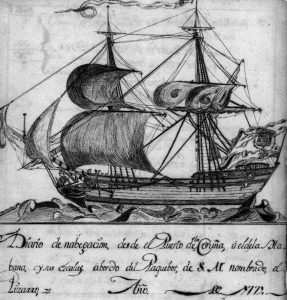 Diario de nabegación, desde el Puerto de Coruña, a el de la Ha
bana, y sus escalas abordo del Paquebot, de S. M. nombrado el
Pizarro. Año. de